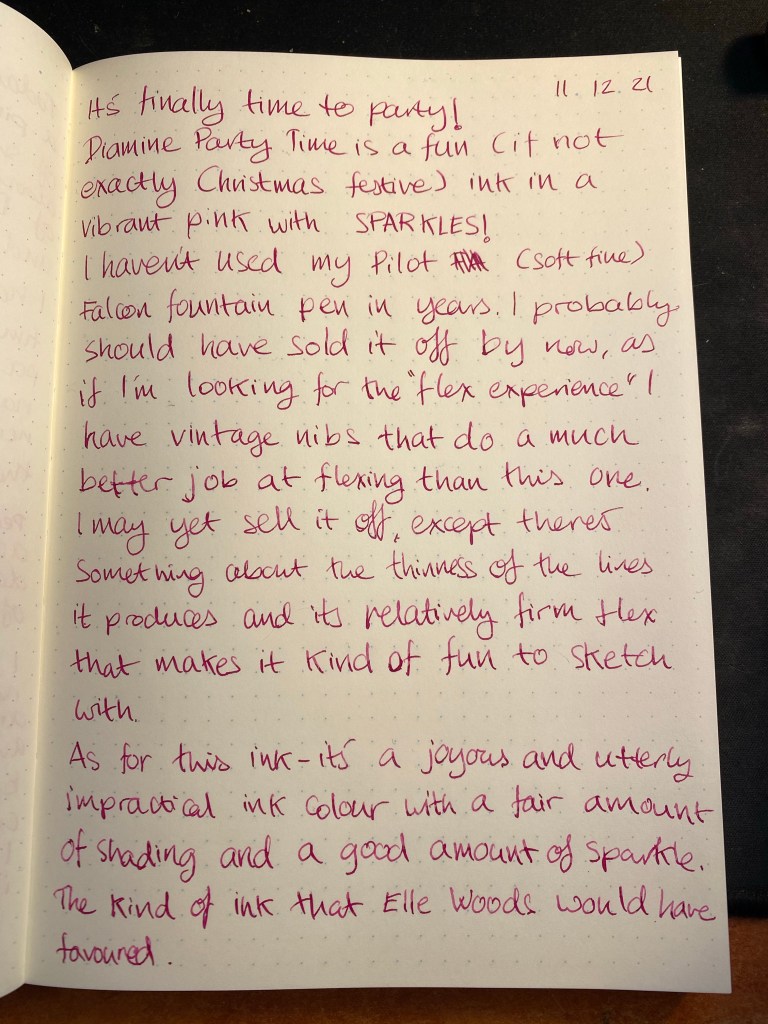 11.12.21
It's finally time to party!
Diamine Party Time is a fun (if not
exactly Christmas festive) ink in a
vibrant pink with SPARKLES!
I haven't used my Pilot (soft fine)
Falcon fountain pen in years. I probably
should have sold it off by now, as
if I'm looking for the "flex experience" I
have vintage nibs that do a much
better job at flexing than this one.
I may yet sell it off, except there's
something about the thinness of the lines
it produces and its relatively firm flex
that makes it kind of fun to sketch
with.
As for this ink - it's a joyous and utterly
impractical ink colour with a fair amount
of shading and a good amount of sparkle.
The kind of ink that Elle Woods would have
favoured.